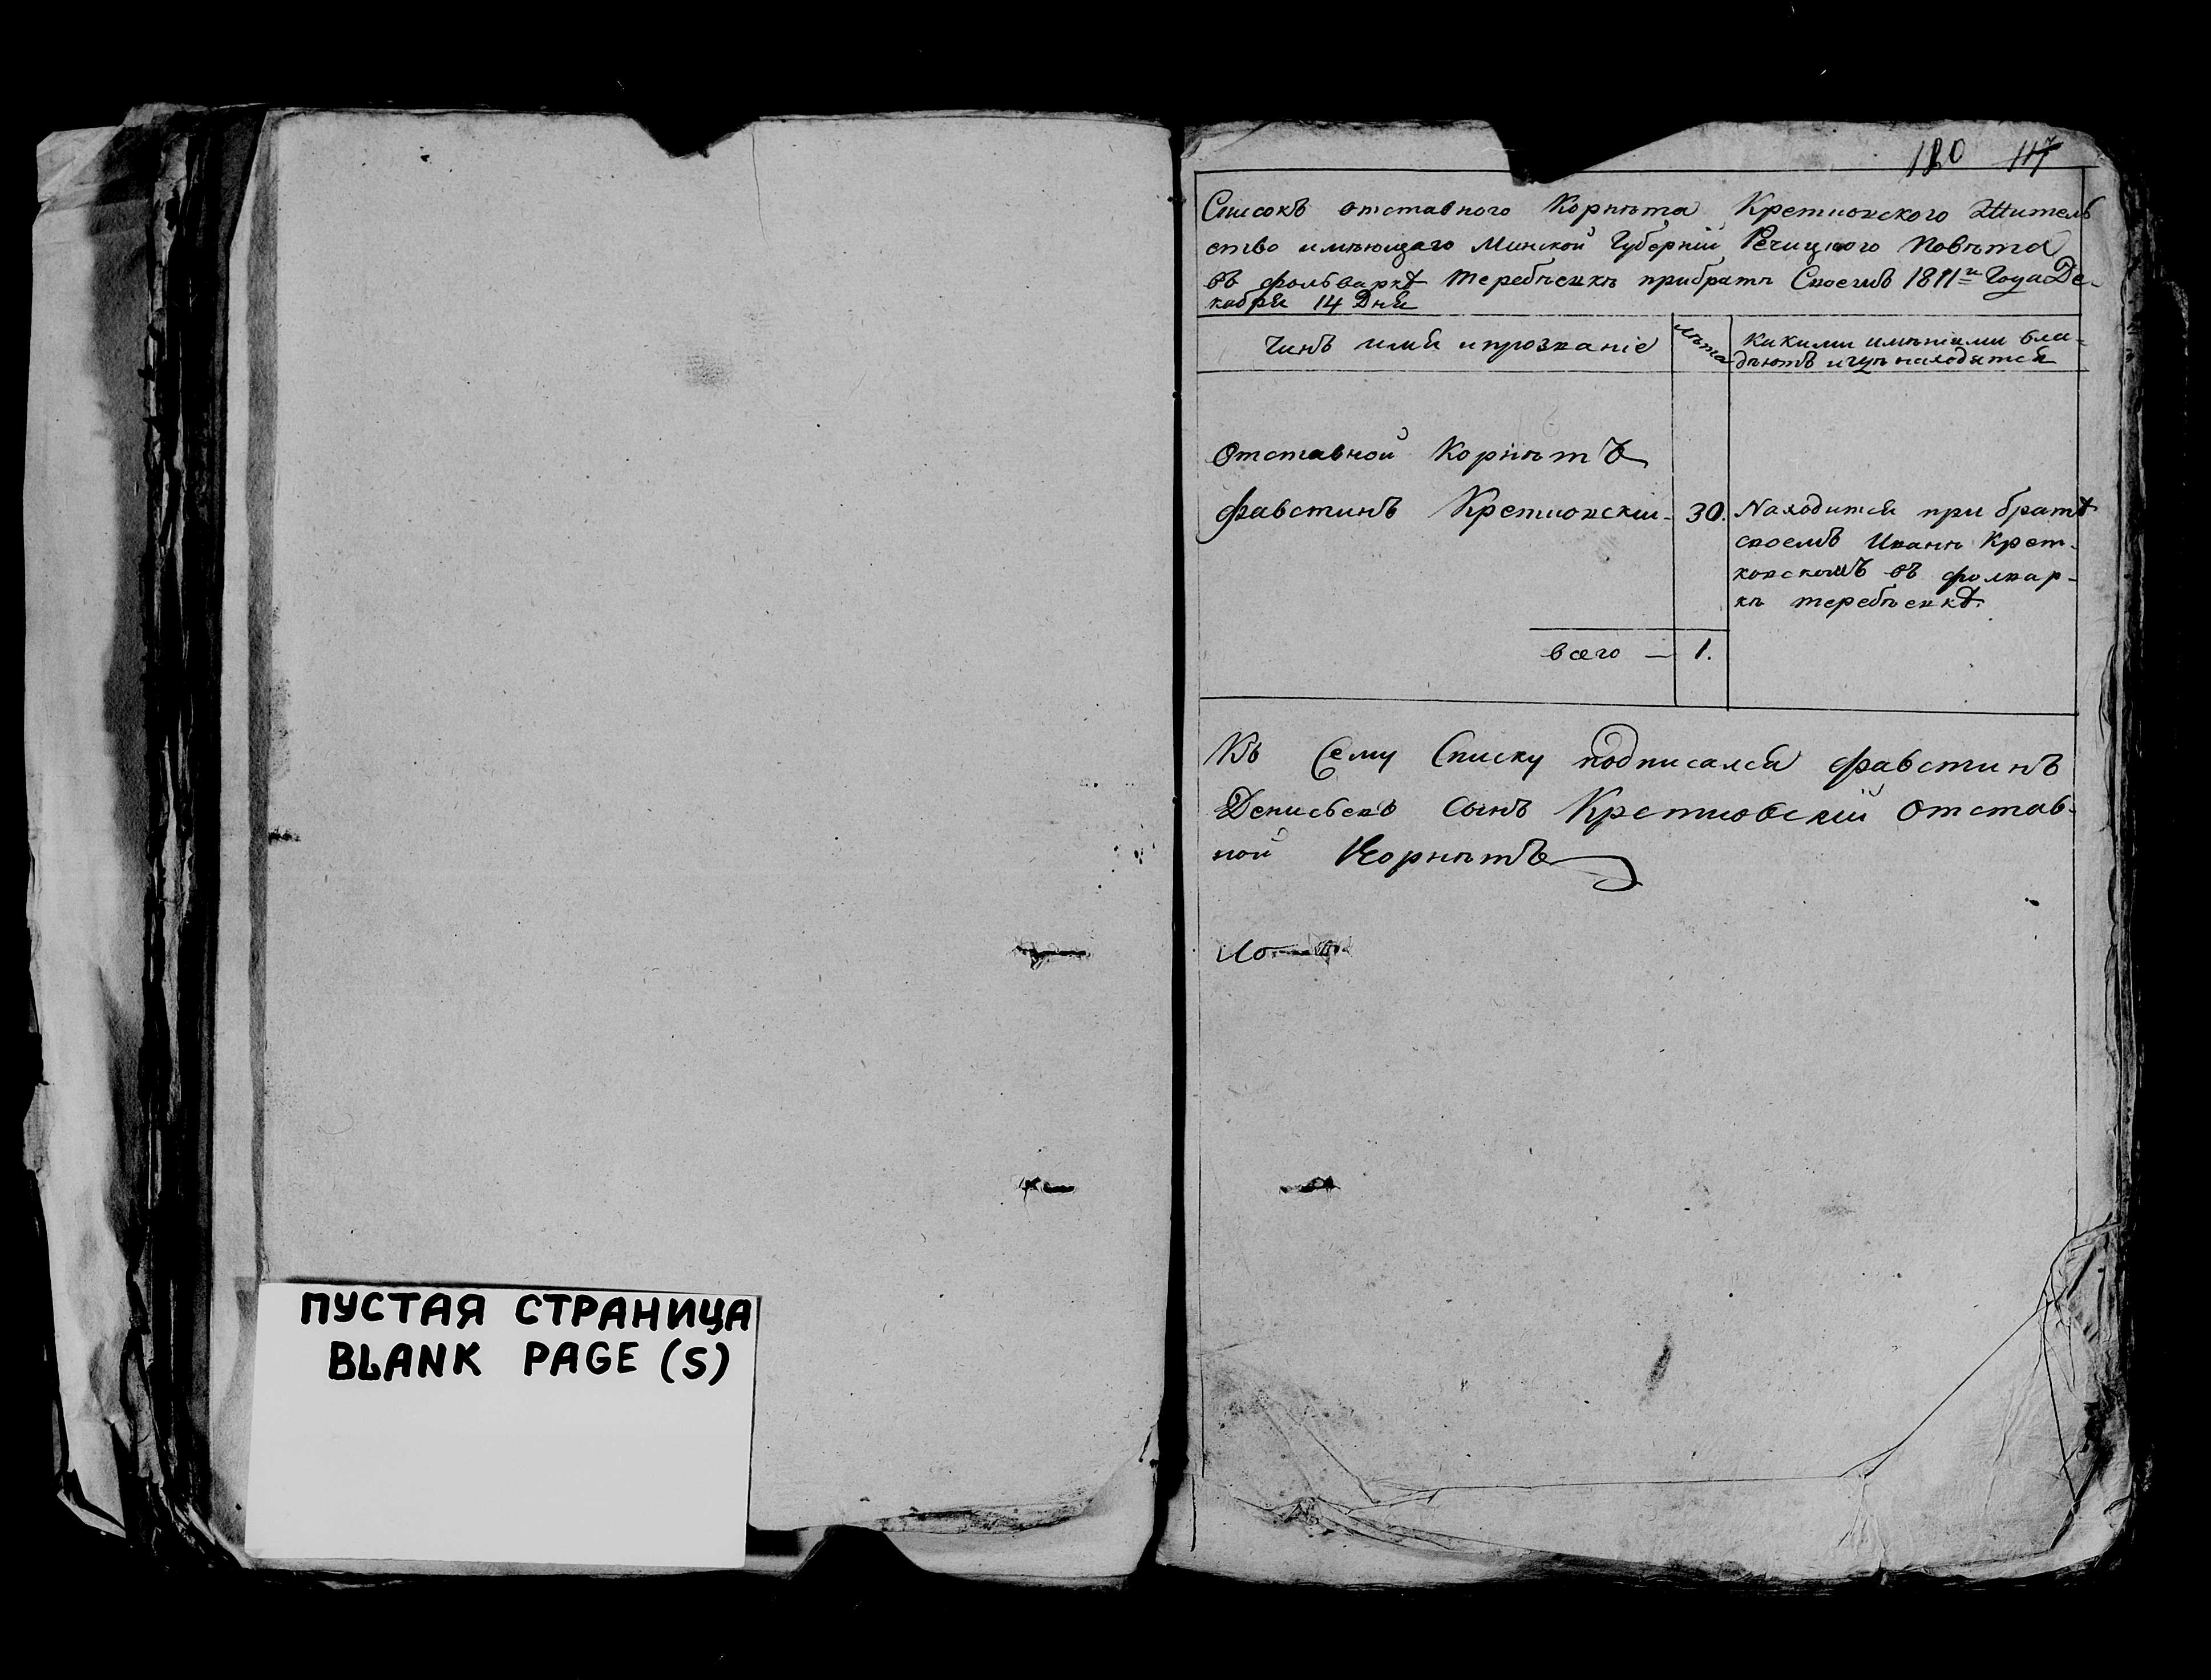 ПУСТАЯ СТРАНИЦА
BLANK PAGE (S)
180 117
Списокъ отставного Корнѣта Кретковского Житель
ство имѣющаго Минской Губерніи Речицкого Повѣта
въ фольваркѣ Теребѣевкѣ прибратѣ Своемъ 1811го Года Де-
кабря 14 Дня
Чинъ имя ипрозваніе
лѣта
какими имѣніями вла-
дѣютъ игдѣ находятся
Отставной Корнѣтъ
Фавстинъ Кретковскій - 30.
Находится при братѣ
своемъ Иванѣ Крет-
ковскомъ въ фолвар-
кѣ теребѣевкѣ.
всего — 1.
Къ Сему Списку подписался Фавстинъ
Денисьевъ Сынъ Кретковскій отстав-
ной Корнѣтъ